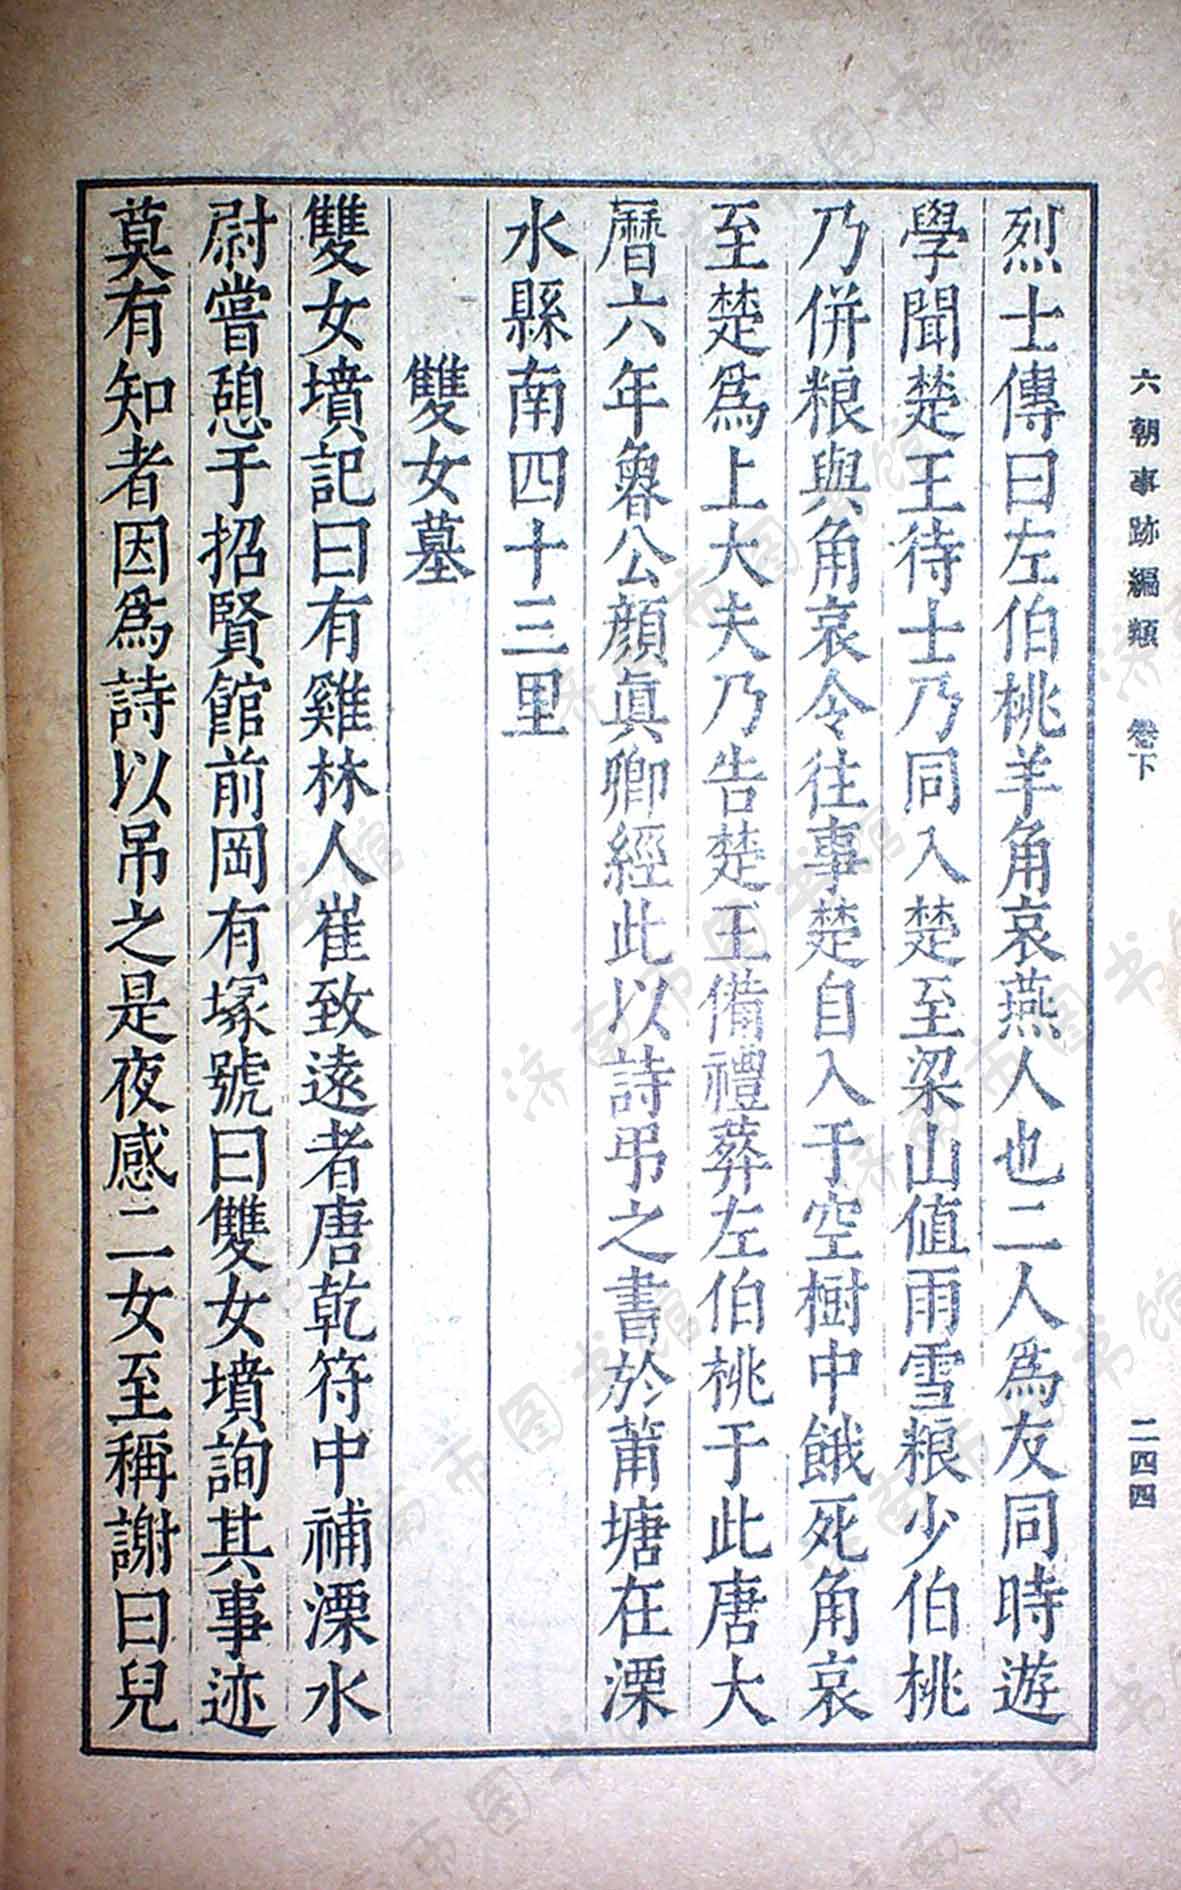 六朝事跡編類 卷下 二四四
烈士傳曰左伯桃羊角哀燕人也二人爲友同時遊
學聞楚王待士乃同入楚至梁山値雨雪粮少伯桃
乃併粮與角哀令往事楚自入于空樹中餓死角哀
至楚爲上大夫乃告楚王備禮葬左伯桃于此唐大
曆六年魯公顔眞卿經此以詩弔之書於莆塘在溧
水縣南四十三里
雙女墓
雙女墳記曰有雞林人崔致遠者唐乾符中補溧水
尉嘗憩于招賢館前岡有塚號曰雙女墳詢其事迹
莫有知者因爲詩以吊之是夜感二女至稱謝曰兒
济南市图书馆